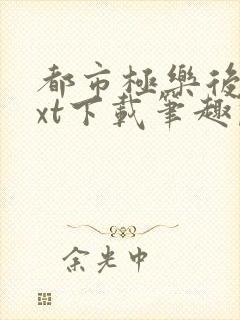 都市極樂後
xt下載筆趣
余光中